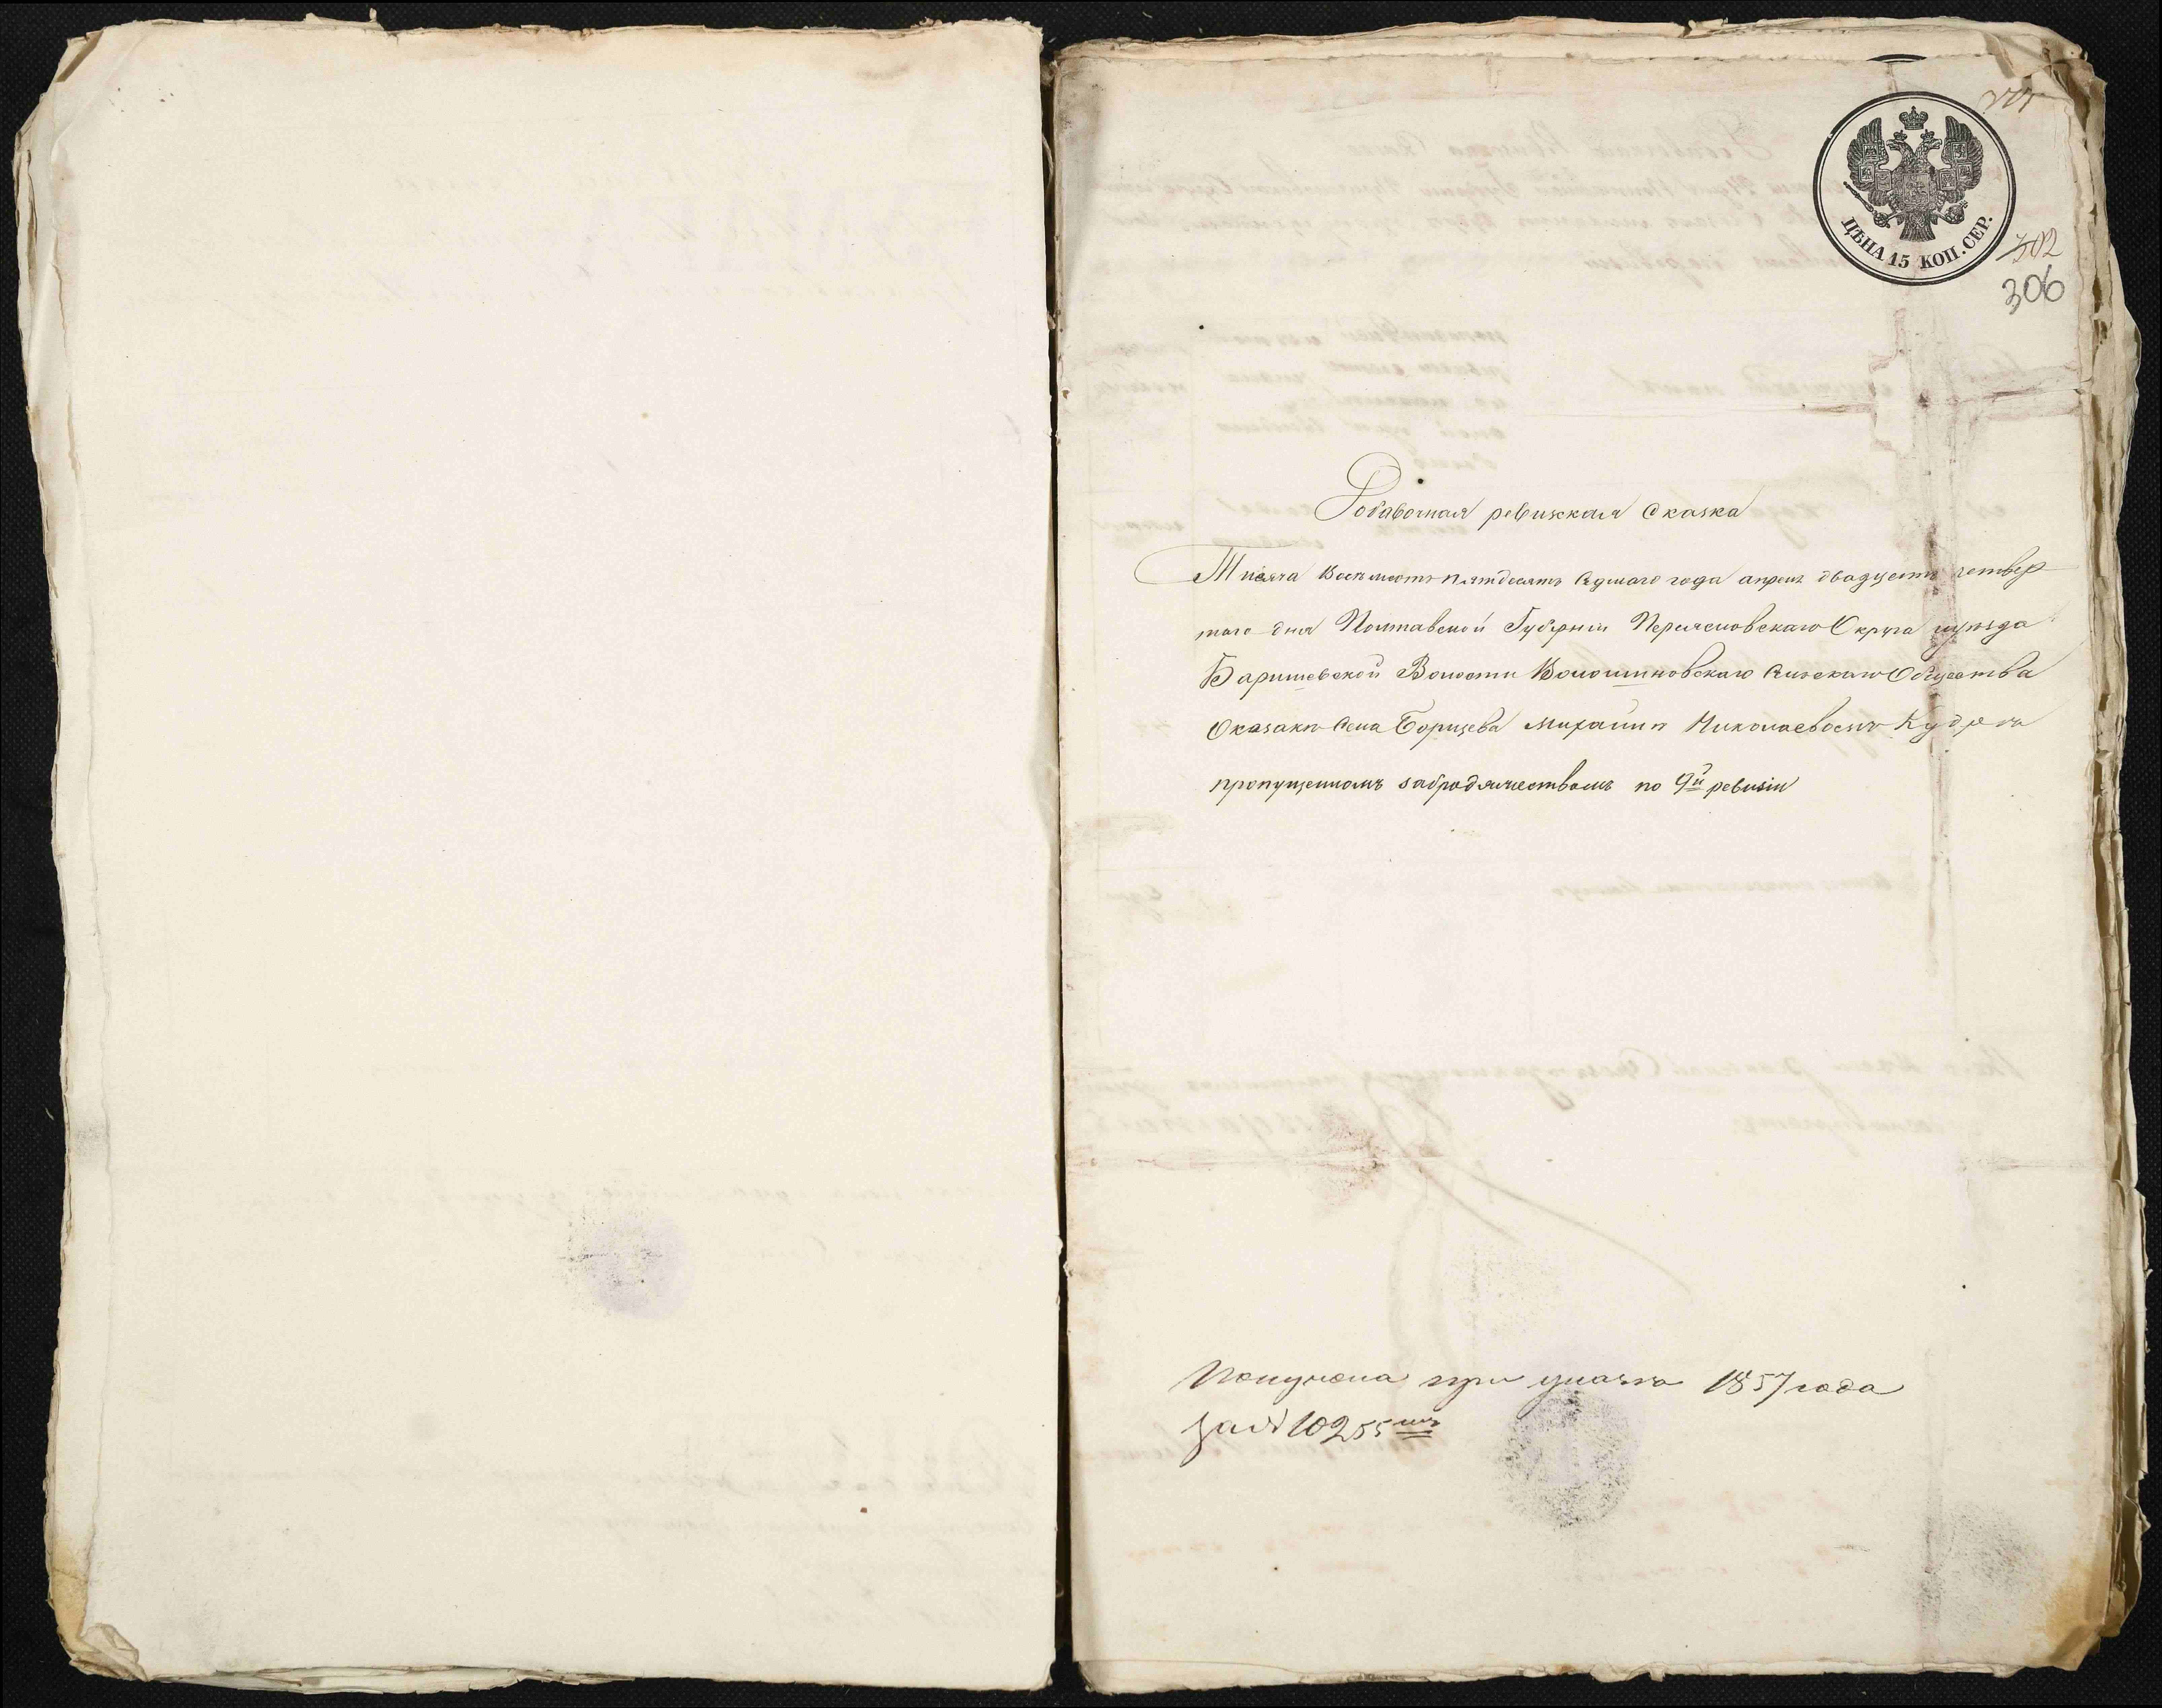 ЦѢНА 15 КОП. СЕР.
302
306
Добавочная ревизская Сказка
Тисяча восемсотъ пятдесятъ седмаго года апреля двадцять четвер
таго дня Полтавской Губерніи Переяславскаго Округа и уѣзда
Баришевской Волости Волошиновскаго Сельскаго Общества
О казакѣ села Борщева Михаилѣ Николаевомъ Кудря
пропущенномъ за бродяжествомъ по 9й ревизіи
Получена при 1857 года
за № 10255мъ